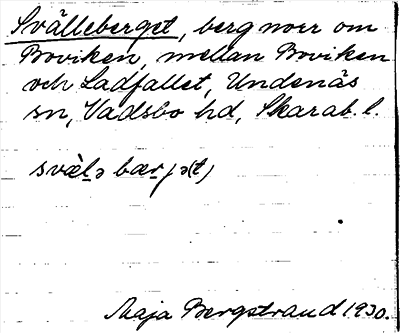 Svälleberget, berg norr om
Boviken, mellan Boviken
och Ladfallet, Undenäs
sn, Vadsbo hd, Skarab. l.
svä̀lə bærjə(t)
Maja Bergstrand 1930.